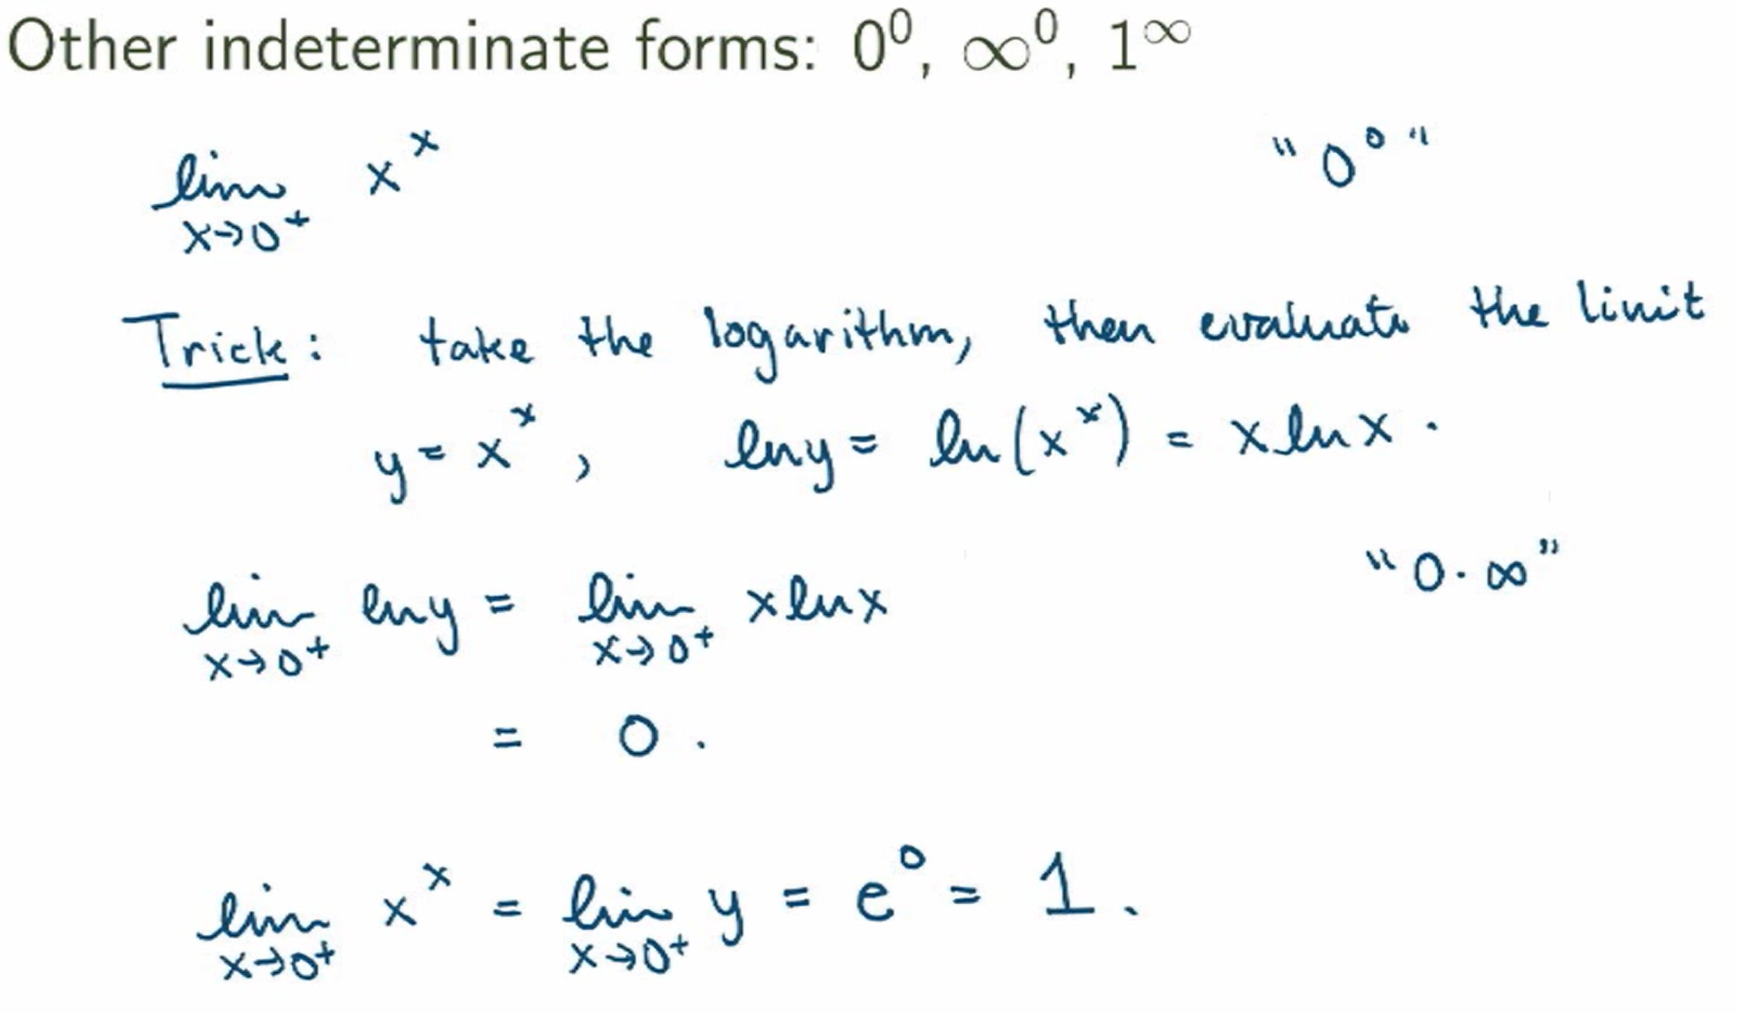 Other indeterminate forms: 0⁰, ∞⁰, 1^∞
lim x→0⁺ xˣ "0⁰"
Trick: take the logarithm, then evaluate the limit
y = xˣ, ln y = ln(xˣ) = x ln x.
lim x→0⁺ ln y = lim x→0⁺ x ln x "0·∞"
= 0.
lim x→0⁺ xˣ = lim x→0⁺ y = e⁰ = 1.